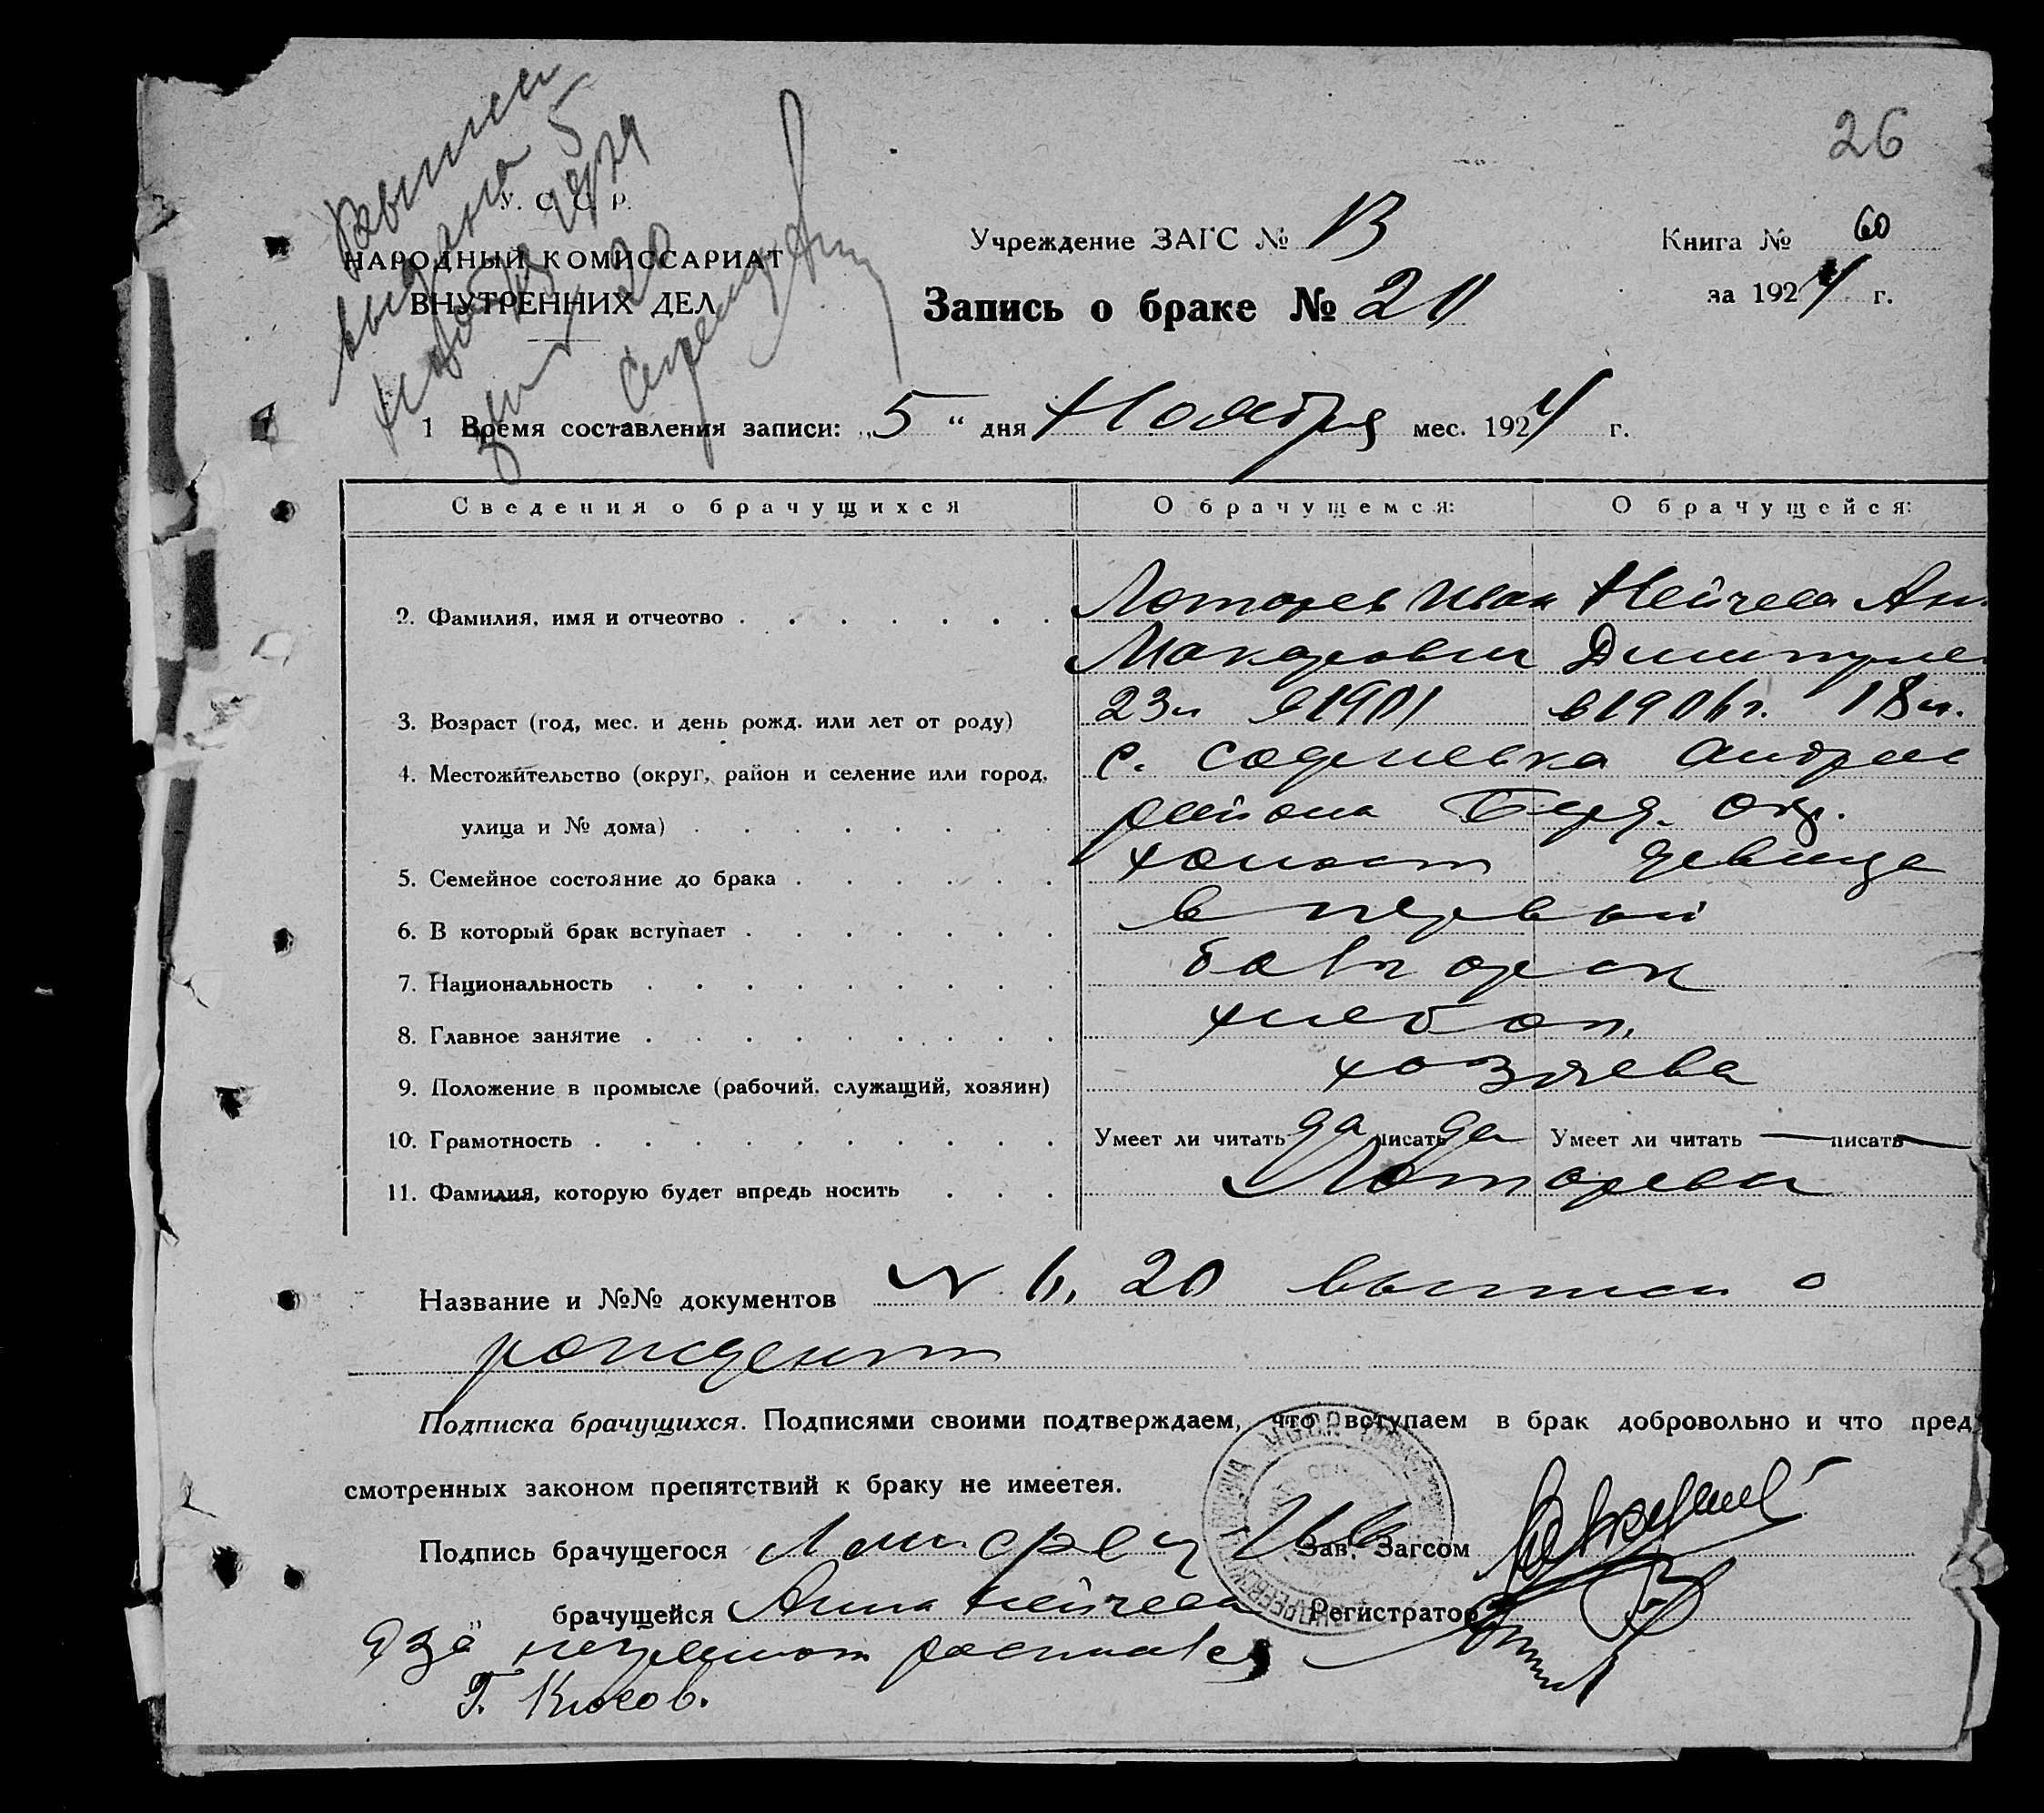 26
Выпись
выдана 5
ноября 1924
У. С. С. Р.
НАРОДНЫЙ КОМИССАРИАТ
ВНУТРЕННИХ ДЕЛ
Учреждение ЗАГС №
Книга № 60
за 1924 г.
Запись о браке № 20
1 Время составления записи: „5“ дня Ноября мес. 1924 г.
Сведения о брачущихся О брачущемся: О брачущейся:
2. Фамилия, имя и отчество Лоторев Иван Нейчева Ан
Макарович Дмитрие
3. Возраст (год, мес. и день рожд. или лет от роду) 23 л в 1901 в 1906 г. 18 л.
4. Местожительство (округ, район и селение или город, с. Софиевка Андрее
улица и № дома) района Берд. окр.
5. Семейное состояние до брака холост девица
6. В который брак вступает в первый
7. Национальность болгоре
8. Главное занятие хлебоп.
9. Положение в промысле (рабочий, служащий, хозяин) хозяева
10. Грамотность Умеет ли читать да писать да Умеет ли читать — писать —
11. Фамилия, которую будет впредь носить Лоторевы
Название и №№ документов 20 выписи о
рождении
Подписка брачущихся. Подписями своими подтверждаем, что вступаем в брак добровольно и что пред
смотренных законом препятствий к браку не имеется.
Подпись брачущегося Лоторев Ив Зав. Загсом
брачущейся Анна Нейчева Регистратор
а за неграмот расписался
Г. Кюсов.